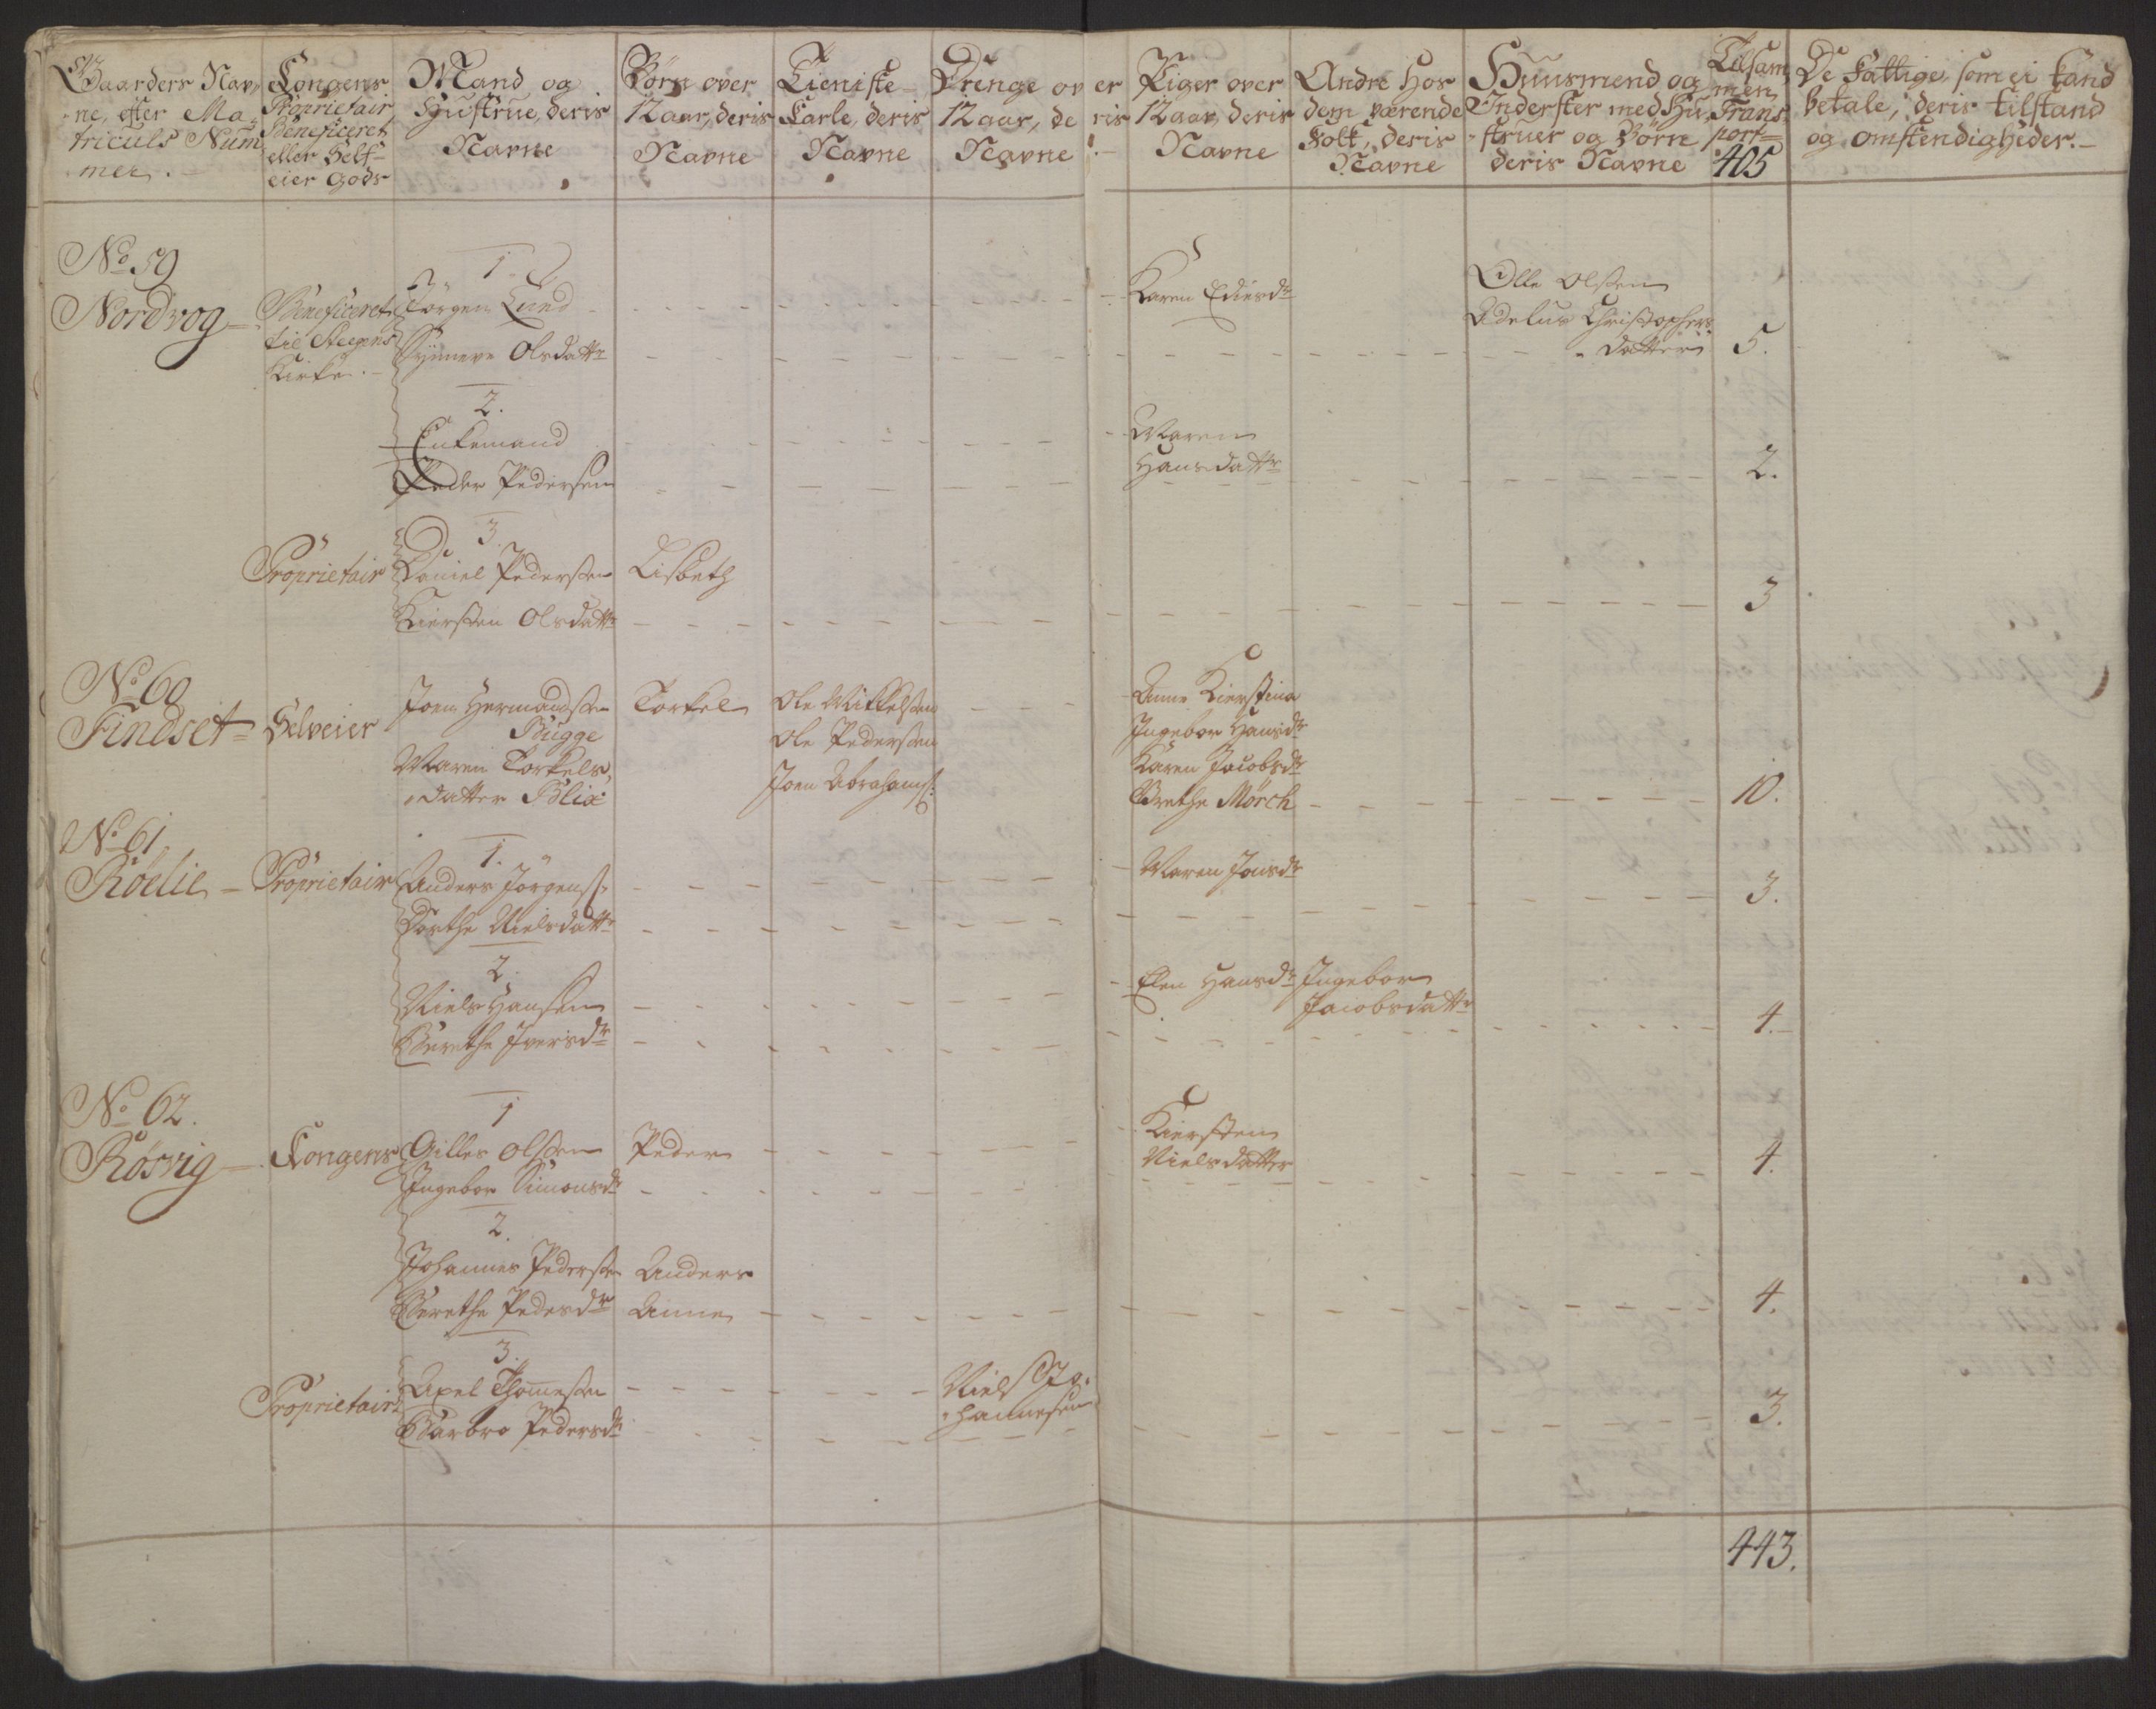 Gaarders Nav,
ne, efter Ma-
triculs Num
mer.
Congens
Proprietair
Beneficeret
eller Self-
eier Gods
Mand og
Hustrue, deris
Navne
Börn over
12 aar, deris
Navne
Tieniste-
Carle, deris
Navne
Drenge over
12 aar, deris
Navne
Piger over
12 aar, deris
Navne
Andre Hos
dem værende
Folk, deris
Navne
Huusmend og
Inderster med Hu-
struer og Börn
deris Navne
Tilsam
men,
Trans
port
405
De Fattige, som ei kand
betale, deris tilstand
og omstendigheder.
No 59
Nordvog
Beneficeret
til Steegens
Kirke.
1
Jörgen Lund
Karen Ediesdr
Olle Olsen
Adelus Christophers
Synneve Olsdattr
datter
5.
2.
Enkemand
Maren
Peder Pedersen
Hansdattr
2.
3.
Proprietair
Daniel Pedersen
Lisbeth
Kiersten Olsdattr
3
No 60
Findset
Selveier
Joen Hermandsen
Bugge
Maren Torkels,
datter Blix
Torkel
Ole Mikkelsen
Ole Pedersen
Joen Abrahams:
Anne Kierstina
Ingebor Hansdr
Karen Jacobsdr
Grethe Mörch
10.
No 61
Röelie
Proprietair
1.
Anders Jörgens:
Dorthe Nielsdattr
Maren Jonsdr
3.
2.
Niels Hansen
Berethe Iversdr
Elen Hansdr
Ingebor
Jacobsdattr
4.
No 62.
Rösvig
Congens
1
Gilles Olsen
Ingebor Simonsdr
Peder
Kiersten
Nielsdatter
4.
2.
Johannes Pedersen
Berethe Pedersdr
Anders
Anne
4.
3.
Proprietair
Axel Thomesen
Barbro Pedersdr
Niels Jo,
hannesen
3.
443.